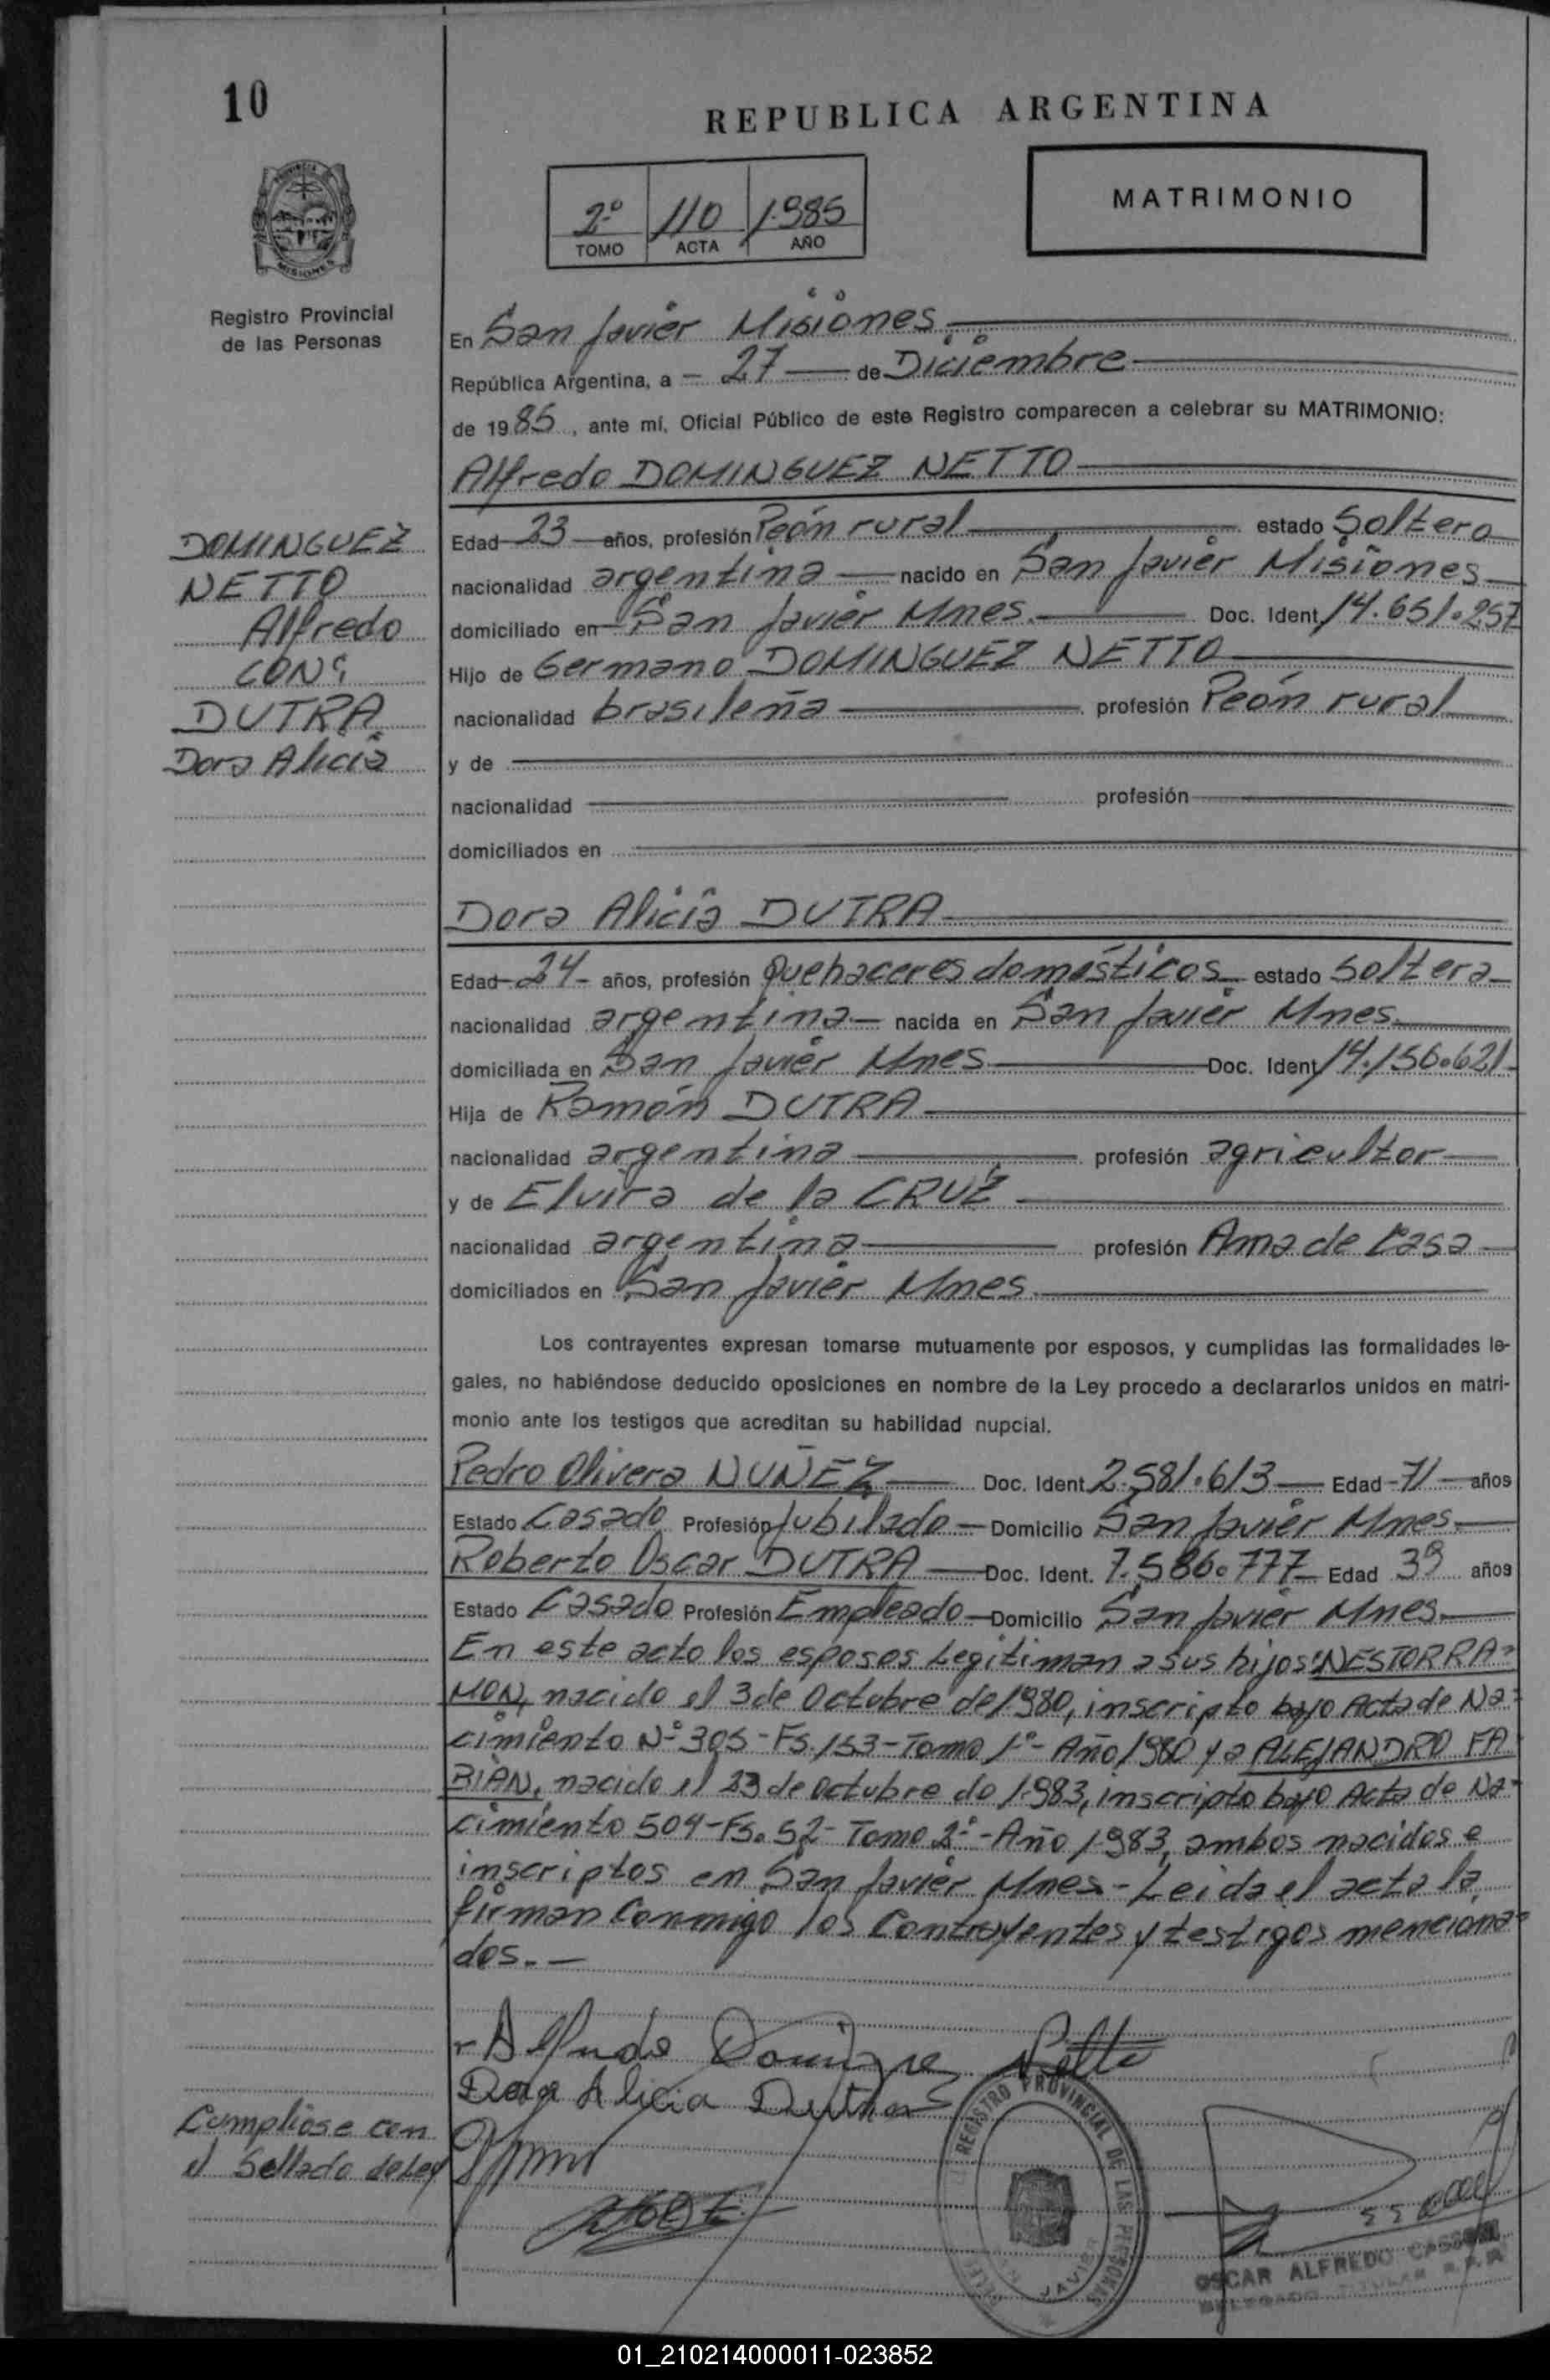 10
REPUBLICA ARGENTINA
PROVINCIA DE MISIONES
Registro Provincial
de las Personas
2º 110 1.985
TOMO ACTA AÑO
MATRIMONIO
En San Javier Misiones
República Argentina, a 27 de Diciembre
de 1985, ante mí, Oficial Público de este Registro comparecen a celebrar su MATRIMONIO:
Alfredo DOMINGUEZ NETTO
DOMINGUEZ
NETTO
Alfredo
CON:
DUTRA
Dora Alicia
Edad 23 años, profesión Peón rural estado Soltero
nacionalidad argentina nacido en San Javier Misiones
domiciliado en San Javier Mnes. Doc. Ident 14.651.257
Hijo de Germano DOMINGUEZ NETTO
nacionalidad brasileña profesión Peón rural
y de
nacionalidad profesión
domiciliados en
Dora Alicia DUTRA
Edad 24 años, profesión Quehaceres domésticos estado Soltera
nacionalidad argentina nacida en San Javier Mnes.
domiciliada en San Javier Mnes Doc. Ident 14.156.621
Hija de Ramón DUTRA
nacionalidad argentina profesión agricultor
y de Elvira de la CRUZ
nacionalidad argentina profesión Ama de Casa
domiciliados en San Javier Mnes.
Los contrayentes expresan tomarse mutuamente por esposos, y cumplidas las formalidades le-
gales, no habiéndose deducido oposiciones en nombre de la Ley procedo a declararlos unidos en matri-
monio ante los testigos que acreditan su habilidad nupcial.
Pedro Olivera NUÑEZ Doc. Ident 2.581.613 Edad 71 años
Estado Casado Profesión Jubilado Domicilio San Javier Mnes.
Roberto Oscar DUTRA Doc. Ident. 7.586.777 Edad 39 años
Estado Casado Profesión Empleado Domicilio San Javier Mnes.
En este acto los esposos Legitiman a sus hijos: NESTOR RA-
MON, nacido el 3 de Octubre de 1980, inscripto bajo Acta de Na-
cimiento Nº 305 - Fs. 153 - Tomo 1º - Año 1980 y a ALEJANDRO FA
BIAN, nacido el 23 de octubre de 1.983, inscripto bajo Acta de Na-
cimiento 504 - Fs. 52 - Tomo 2º - Año 1983, ambos nacidos e
inscriptos en San Javier Mnes - Leida el acta la
firman Conmigo los Contrayentes y testigos menciona-
dos.-
Alfredo Dominguez Netto
Dora Alicia Dutra
Cumplióse con
el Sellado de Ley
REGISTRO PROVINCIAL DE LAS PERSONAS
JAVIER
OSCAR ALFREDO
01_210214000011-023852